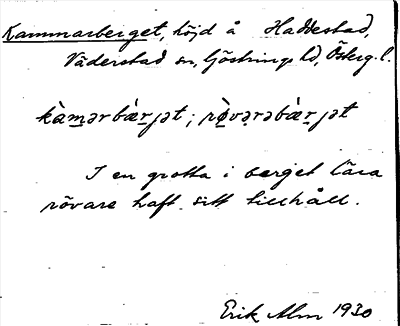 Kammarberget, höjd å Haddestad,
Väderstad sn, Göstrings hd, Österg. l.
kàmərbæ̀rjət; rø̀vərəbæ̀rjət
I en grotta i berget lära
rövare haft sitt tillhåll.
Erik Alm 1930